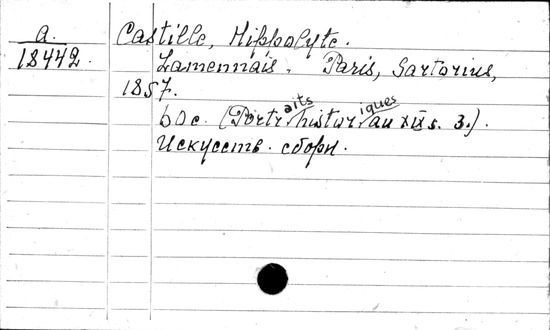 a.
18442.
Castille, Hippolyte.
Lamennais. Paris, Sartorius,
1857.
60 c. (Portraits historiques au XIX s. 3.).
Искусств. сборн.